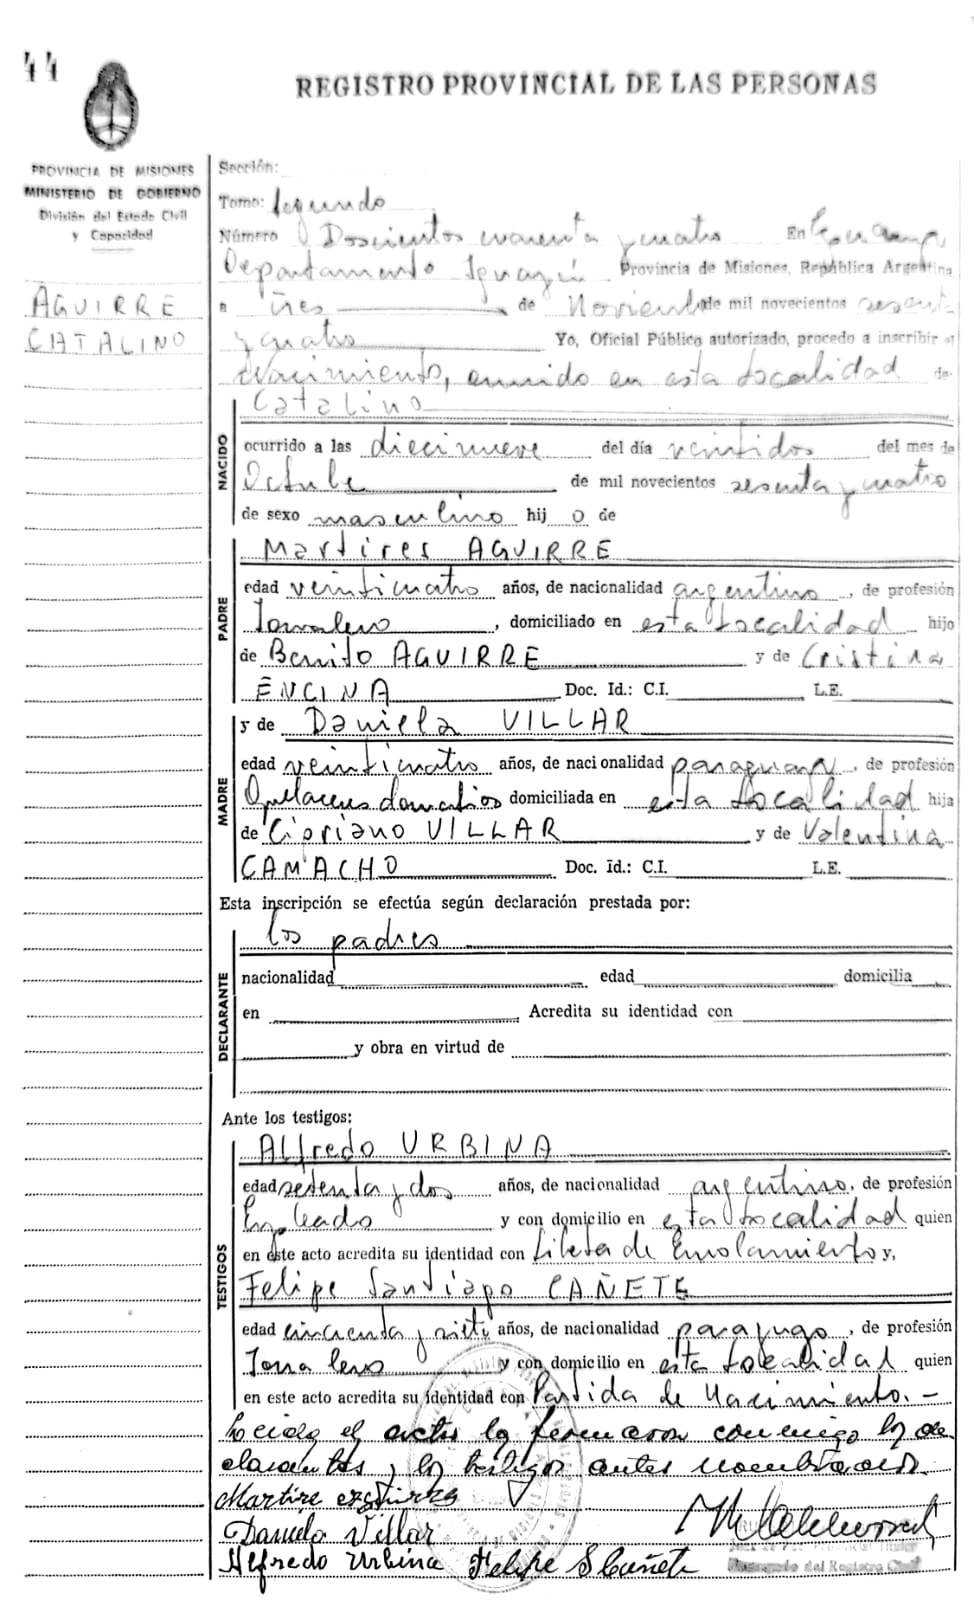 44
REGISTRO PROVINCIAL DE LAS PERSONAS
PROVINCIA DE MISIONES
MINISTERIO DE GOBIERNO
División del Estado Civil
y Capacidad
AGUIRRE
CATALINO
Sección:
Tomo: Segundo
Número Doscientos cuarenta y cuatro En
Departamento Iguazú Provincia de Misiones, República Argentina
a tres de Noviembre de mil novecientos sesenta
y cuatro Yo, Oficial Público autorizado, procedo a inscribir el
nacimiento, ocurrido en esta localidad de
NACIDO
Catalino
ocurrido a las diecinueve del día veintidos del mes de
Octubre de mil novecientos sesenta y cuatro
de sexo masculino hij o de
PADRE
Martires AGUIRRE
edad veinticuatro años, de nacionalidad argentino, de profesión
Jornalero, domiciliado en esta localidad hijo
de Benito AGUIRRE y de Cristina
ENCINA Doc. Id.: C.I. L.E.
y de Daniela VILLAR
MADRE
edad veinticuatro años, de nacionalidad paraguaya, de profesión
Quehaceres domesticos domiciliada en esta localidad hija
de Cipriano VILLAR y de Valentina
CAMACHO Doc. Id.: C.I. L.E.
Esta inscripción se efectúa según declaración prestada por:
DECLARANTE
los padres
nacionalidad edad domicilia
en Acredita su identidad con
y obra en virtud de
Ante los testigos:
TESTIGOS
Alfredo URBINA
edad setenta y dos años, de nacionalidad argentino, de profesión
Empleado y con domicilio en esta localidad quien
en este acto acredita su identidad con Libreta de Enrolamiento y,
Felipe Santiago CAÑETE
edad cincuenta y siete años, de nacionalidad paraguayo, de profesión
Jornalero y con domicilio en esta localidad quien
en este acto acredita su identidad con Partida de Nacimiento. -
Leida el acta la firmaron conmigo los de
clarantes y los testigos antes nombrados.
Martire
Daniela Villar
Alfredo Urbina Felipe S Cañete
Encargado del Registro Civil